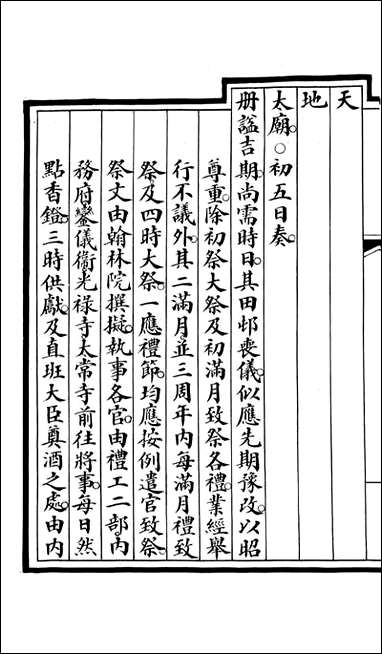 天
地
太廟。○初五日奏。
册謚吉期。尚需時日。其田邨喪儀。似應先期豫改。以昭
尊重。除初祭大祭及初滿月致祭各禮。業經舉
行不議外。其二滿月並三周年內每滿月禮致
祭及四時大祭。一應禮節。均應按例遣官致祭。
祭文由翰林院撰擬。執事各官。由禮工二部內
務府鑾儀衞光祿寺太常寺前往將事。每日然
點香鐙。三時供獻。及直班大臣奠酒之處。由內